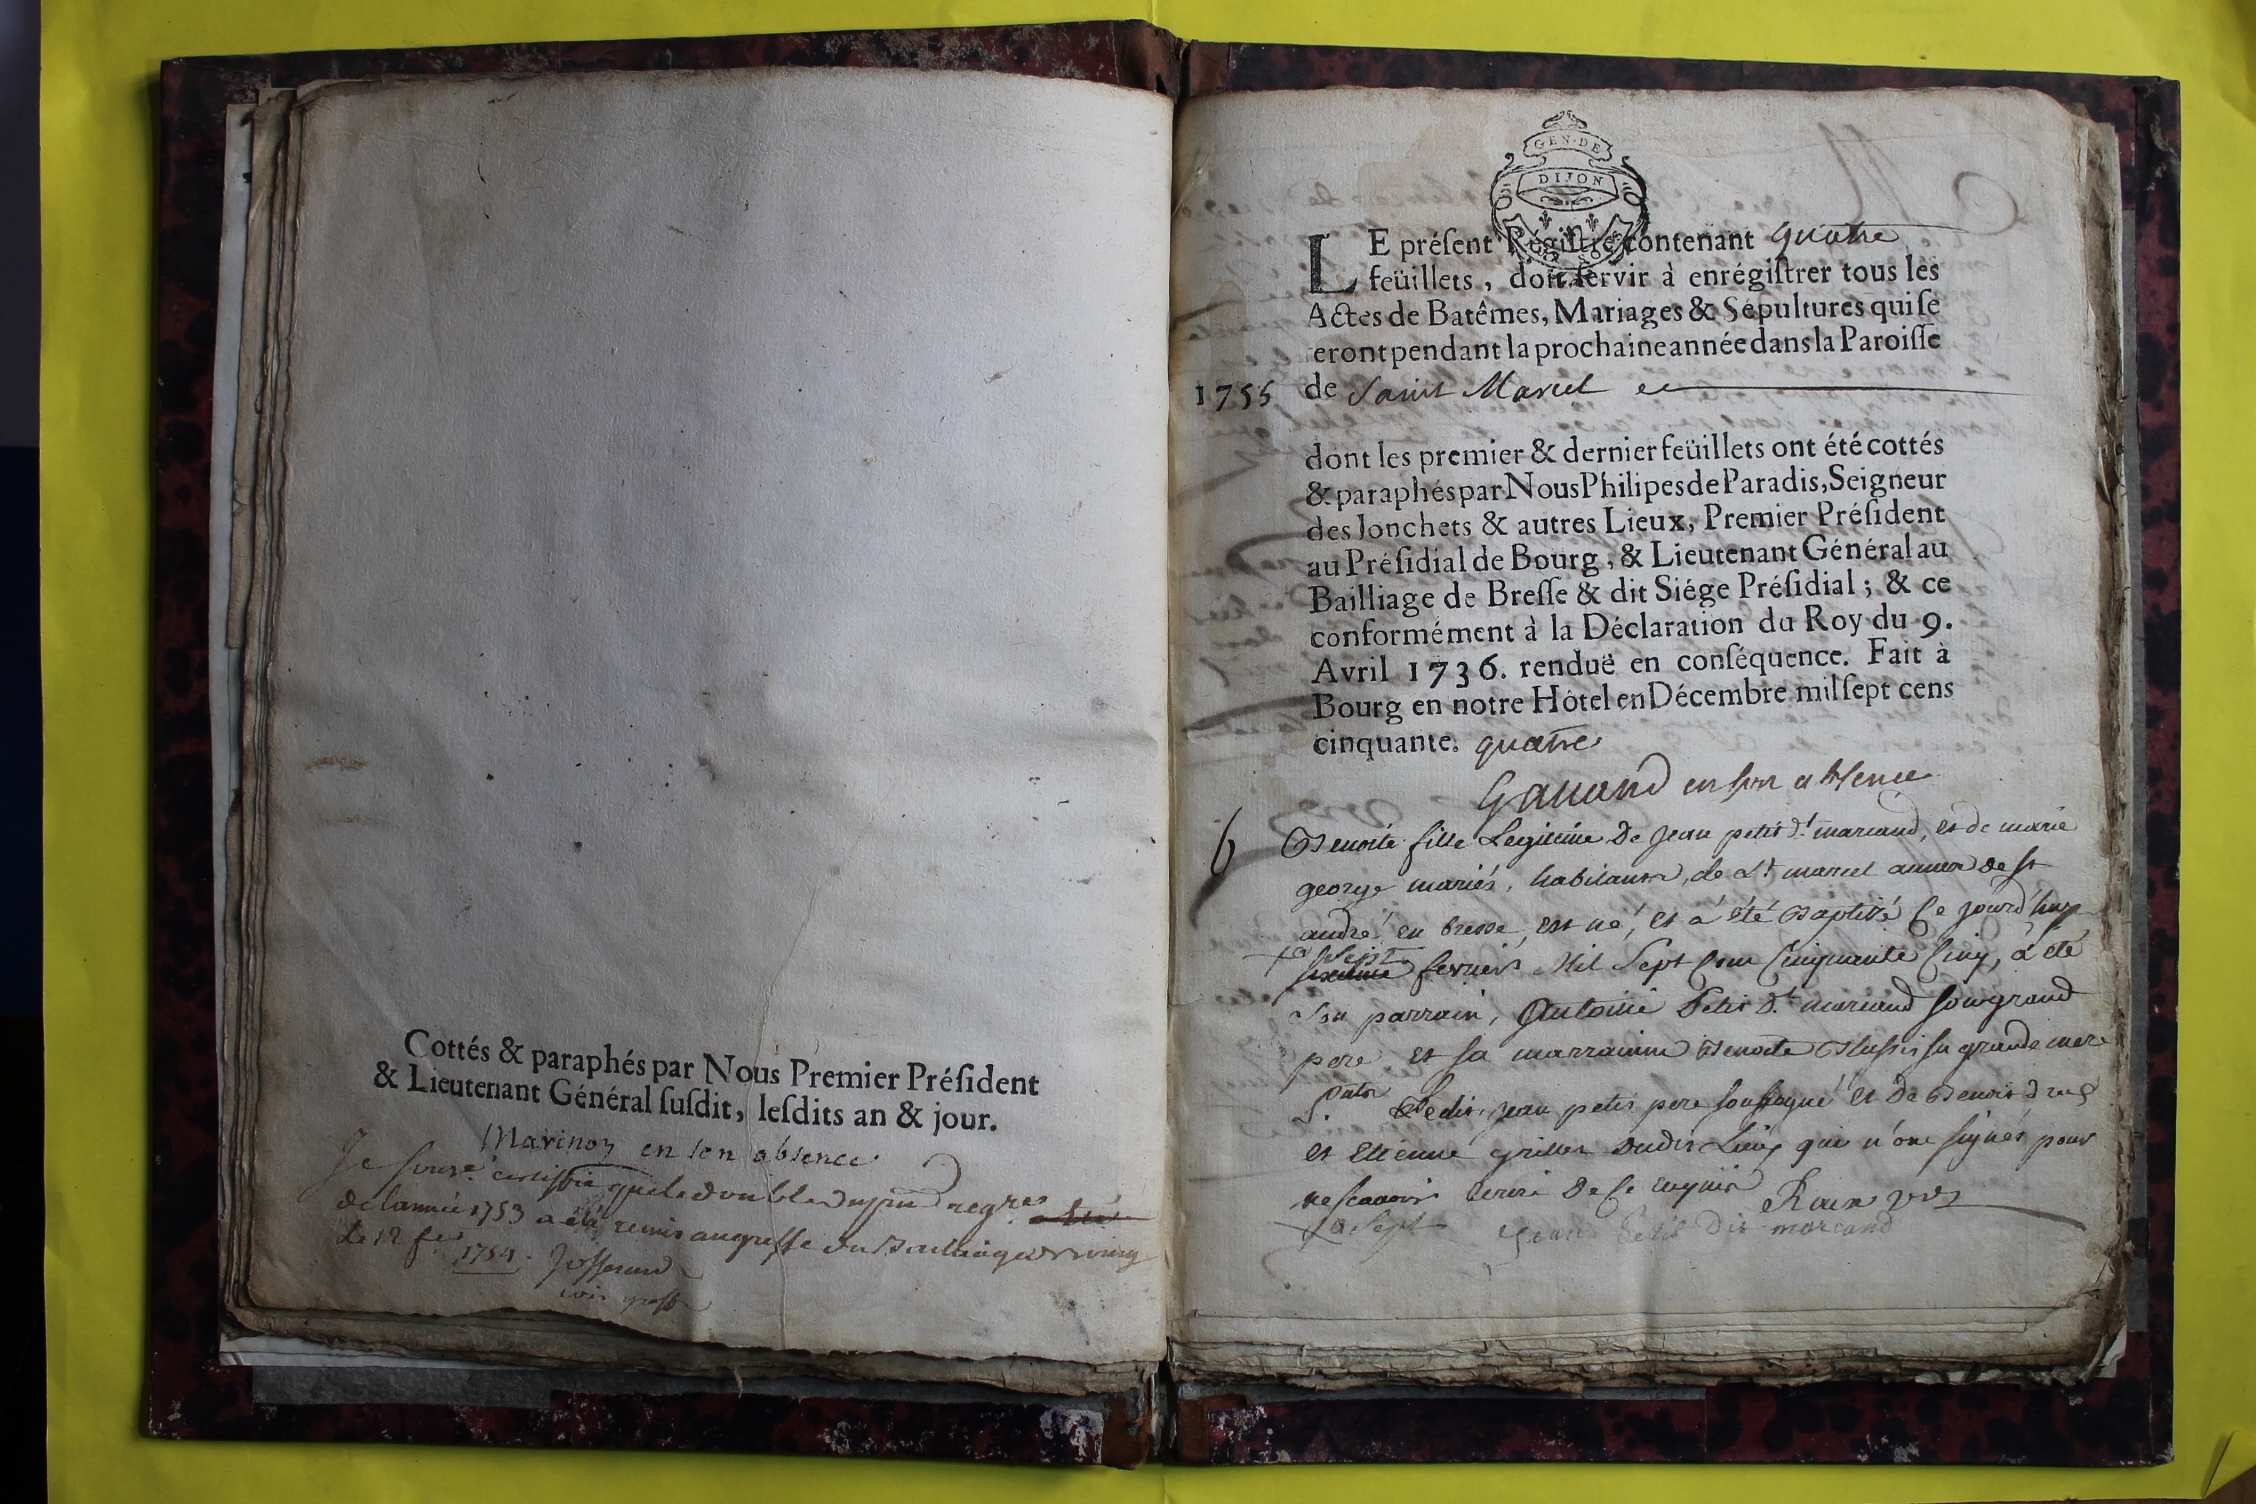 Cottés & paraphés par Nous Premier Préſident
& Lieutenant Général ſuſdit, leſdits an & jour.
Marinon en son absence
Je certiffie que le double du regre
de l'année 1753 a été remis au greffe du Bailliage
Le 12 1754. Josserand
GEN·DE
DIJON
LE préſent Régiſtre contenant quatre
feüillets, doit ſervir à enrégiſtrer tous les
Actes de Batêmes, Mariages & Sépultures qui ſe
eront pendant la prochaine année dans la Paroiſſe
1755 de Saint Marcel
dont les premier & dernier feüillets ont été cottés
& paraphés par Nous Philipes de Paradis, Seigneur
des Jonchets & autres Lieux, Premier Préſident
au Préſidial de Bourg, & Lieutenant Général au
Bailliage de Breſſe & dit Siége Préſidial; & ce
conformément à la Déclaration du Roy du 9.
Avril 1736. renduë en conſéquence. Fait à
Bourg en notre Hôtel en Décembre mil ſept cens
cinquante. quatre
en son absence
b Benoite fille Legitime De Jean petit dt marcand, et de marie
george mariés, habitans, de st marcel annex de st
andré en bresse, est né, et a été Baptisé Ce jourd'huy
+ a sept
fevrier Mil Sept Cent Cinquante Cinq, a été
son parrain, Antoine Petit dt marcand son grand
pere et sa marrainne Benoite sa grande mere
Ledit, jean petit pere soussigné et de Benoit
et Etienne dudit Lieu qui n'ont signés pour
ne scavoir De ce enquis Roux
+ a sept Jean Petit Dit marcand